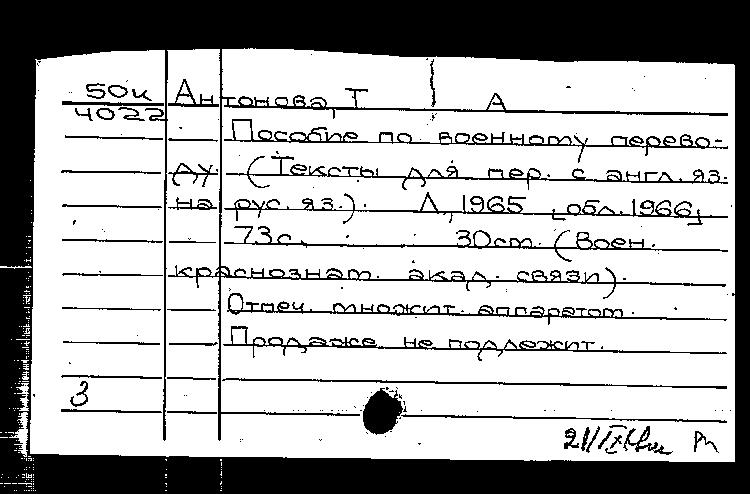 50к Антонова, Т А
4022
Пособие по военному перево-
ду (Тексты для пер. с англ. яз.
на рус. яз.). Л., 1965 [обл. 1966].
73с. 30см. (Воен.
краснознам. акад. связи).
Отпеч. множит. аппаратом.
Продаже не подлежит.
3